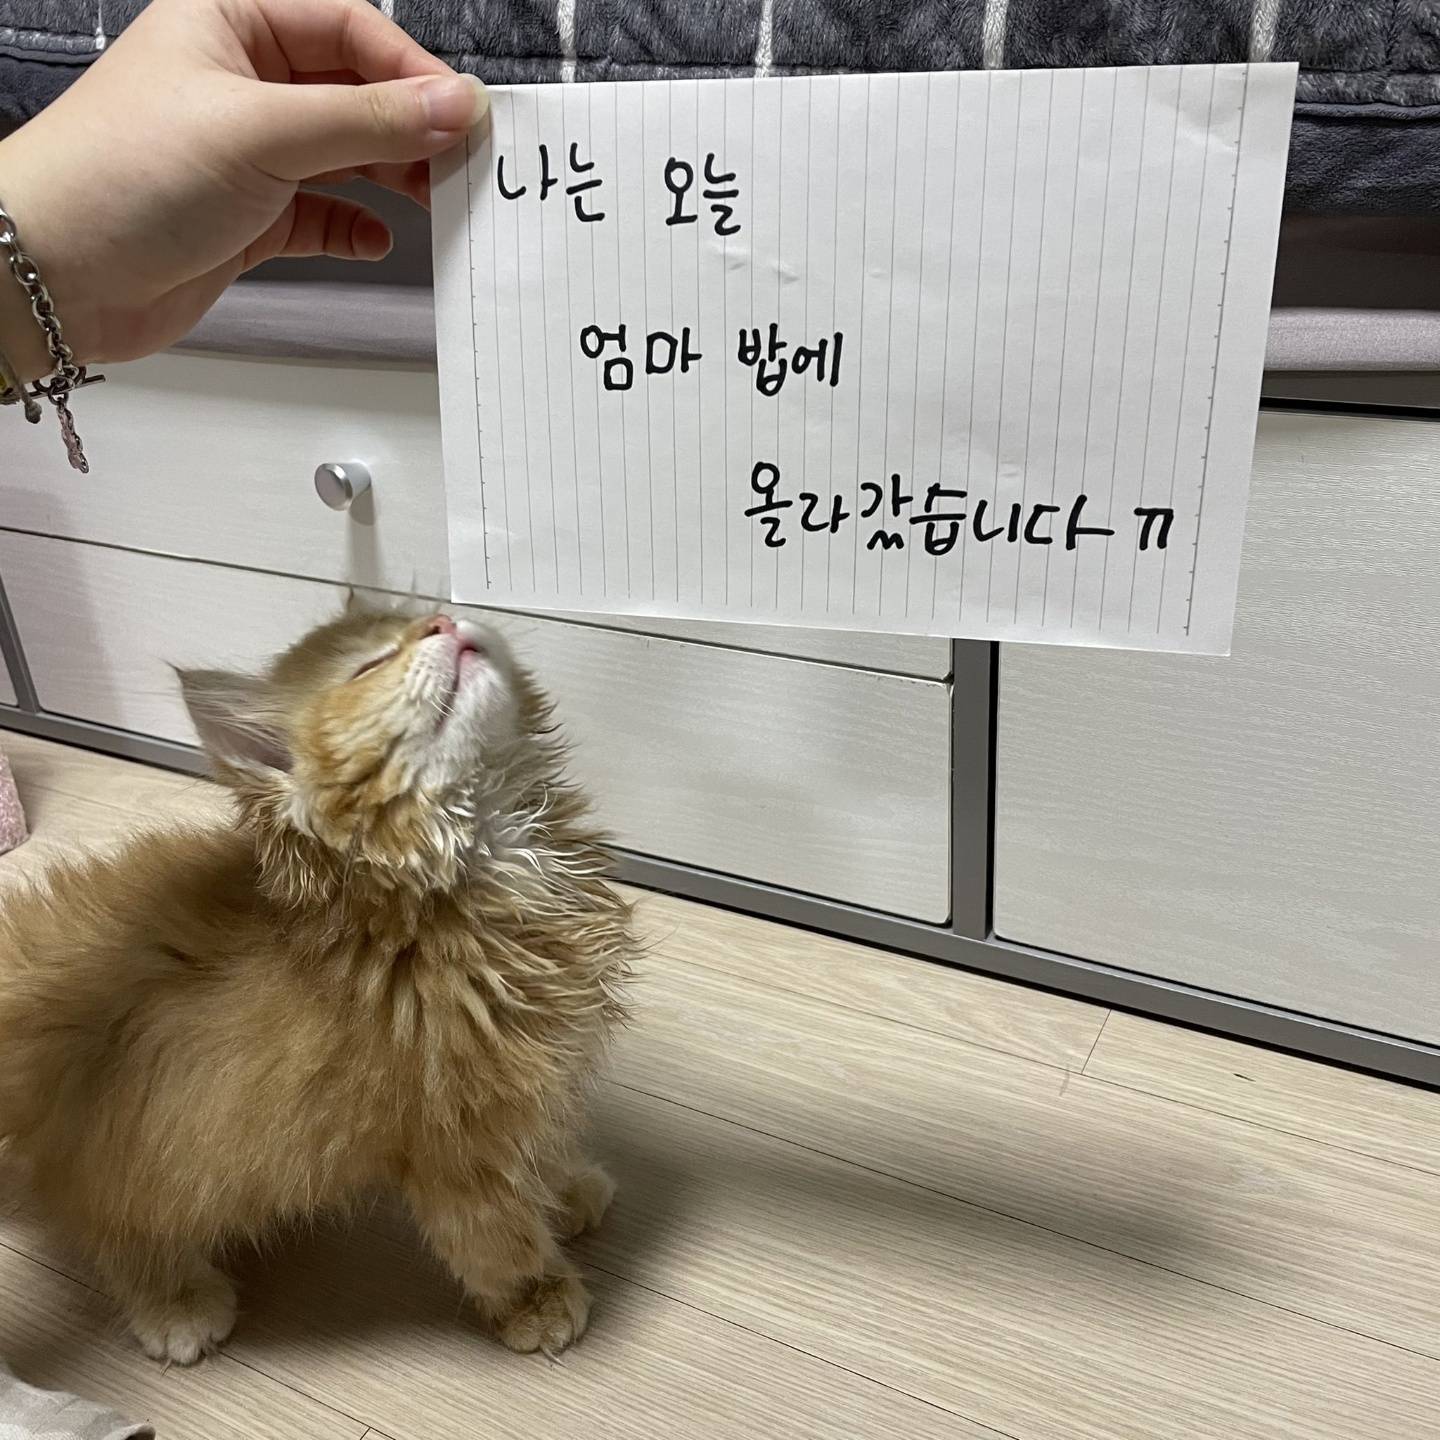 나는 오늘
엄마 밥에
올라갔습니다 ㅠ